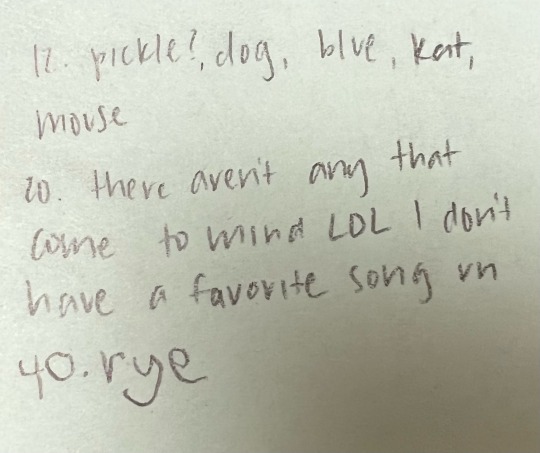 12. pickle?, dog, blue, kat,
mouse
20. there aren't any that
come to mind LOL I don't
have a favorite song rn
40. rye